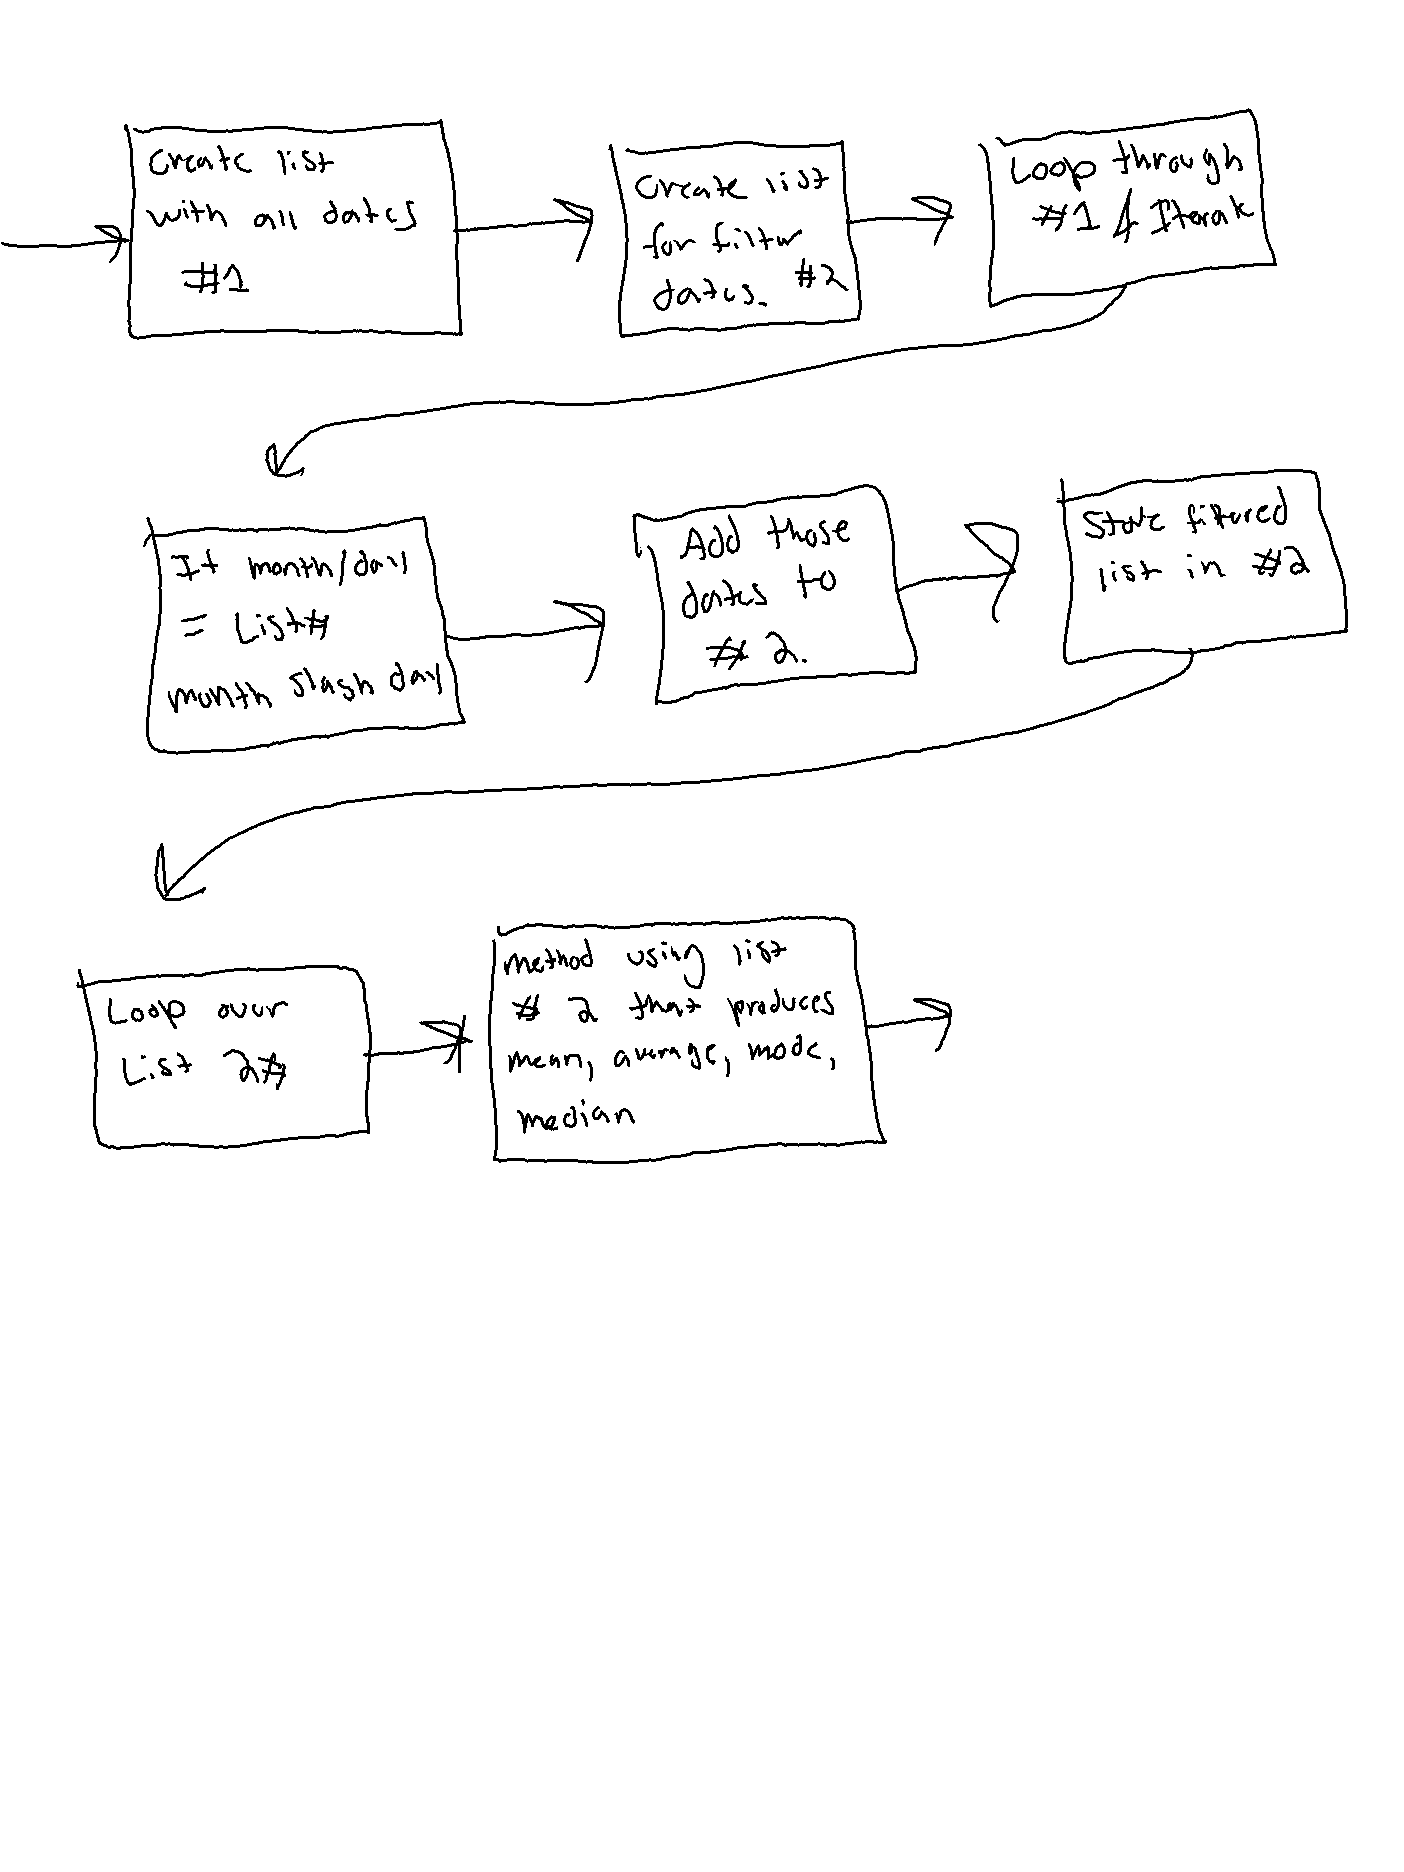 Create list
with all dates
#1
Create list
for filter
dates. #2
Loop through
#1 & Iterate
If month/day
= List#
month slash day
Add those
dates to
# 2.
Store filtered
list in #2
Loop over
List 2#
method using list
# 2 that produces
mean, average, mode,
median